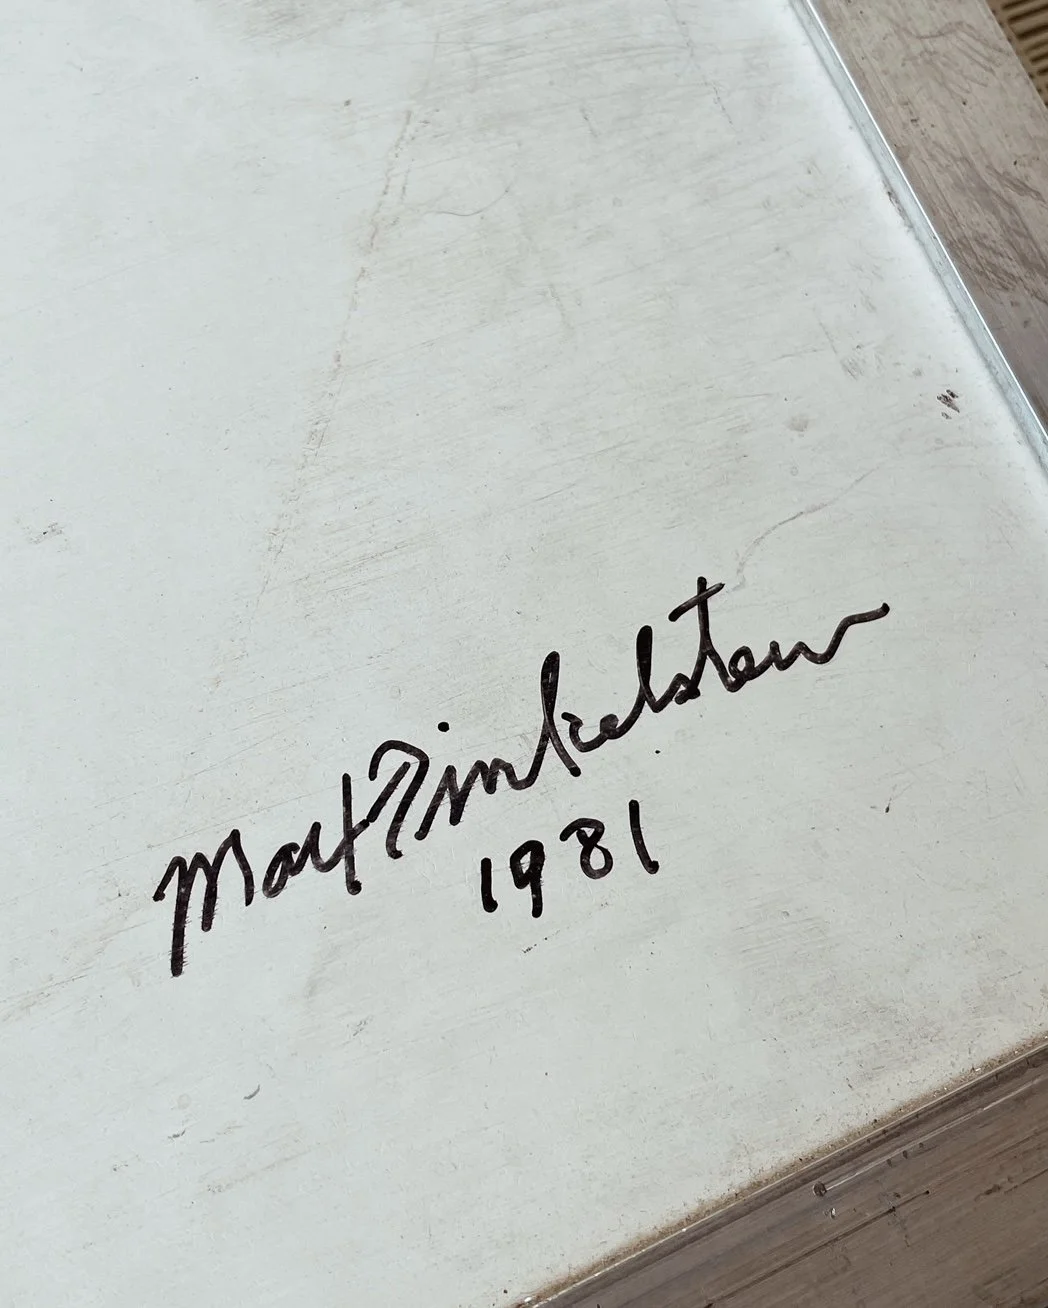 Max Finkelstein
1981